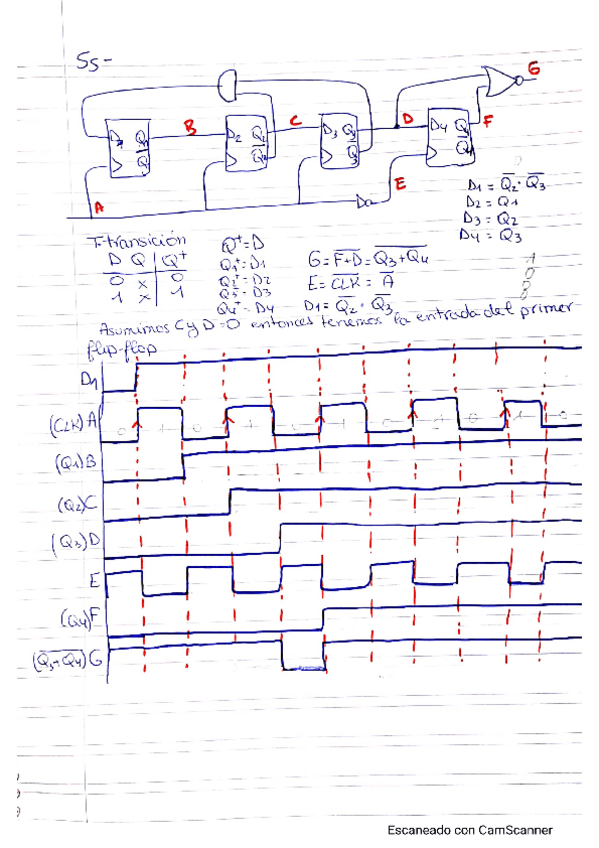 55-
G
B
C
D
F
D1 Q1
D2 Q2
D3 Q3
D4 Q4
E
A
D1 = Q̅2 · Q̅3
D2 = Q1
D3 = Q2
D4 = Q3
T-transición
D Q Q⁺
0 x 0
1 x 1
Q⁺=D
Q1⁺=D1
Q2⁺=D2
Q3⁺=D3
Q4⁺=D4
G = F+D = Q3+Q4
E = CLK = A̅
D1 = Q̅2 · Q̅3
Asumimos C y D=0 entonces tenemos la entrada del primer
flip-flop
D1
(CLK) A
(Q1) B
(Q2) C
(Q3) D
E
(Q4) F
(Q3+Q4) G
Escaneado con CamScanner